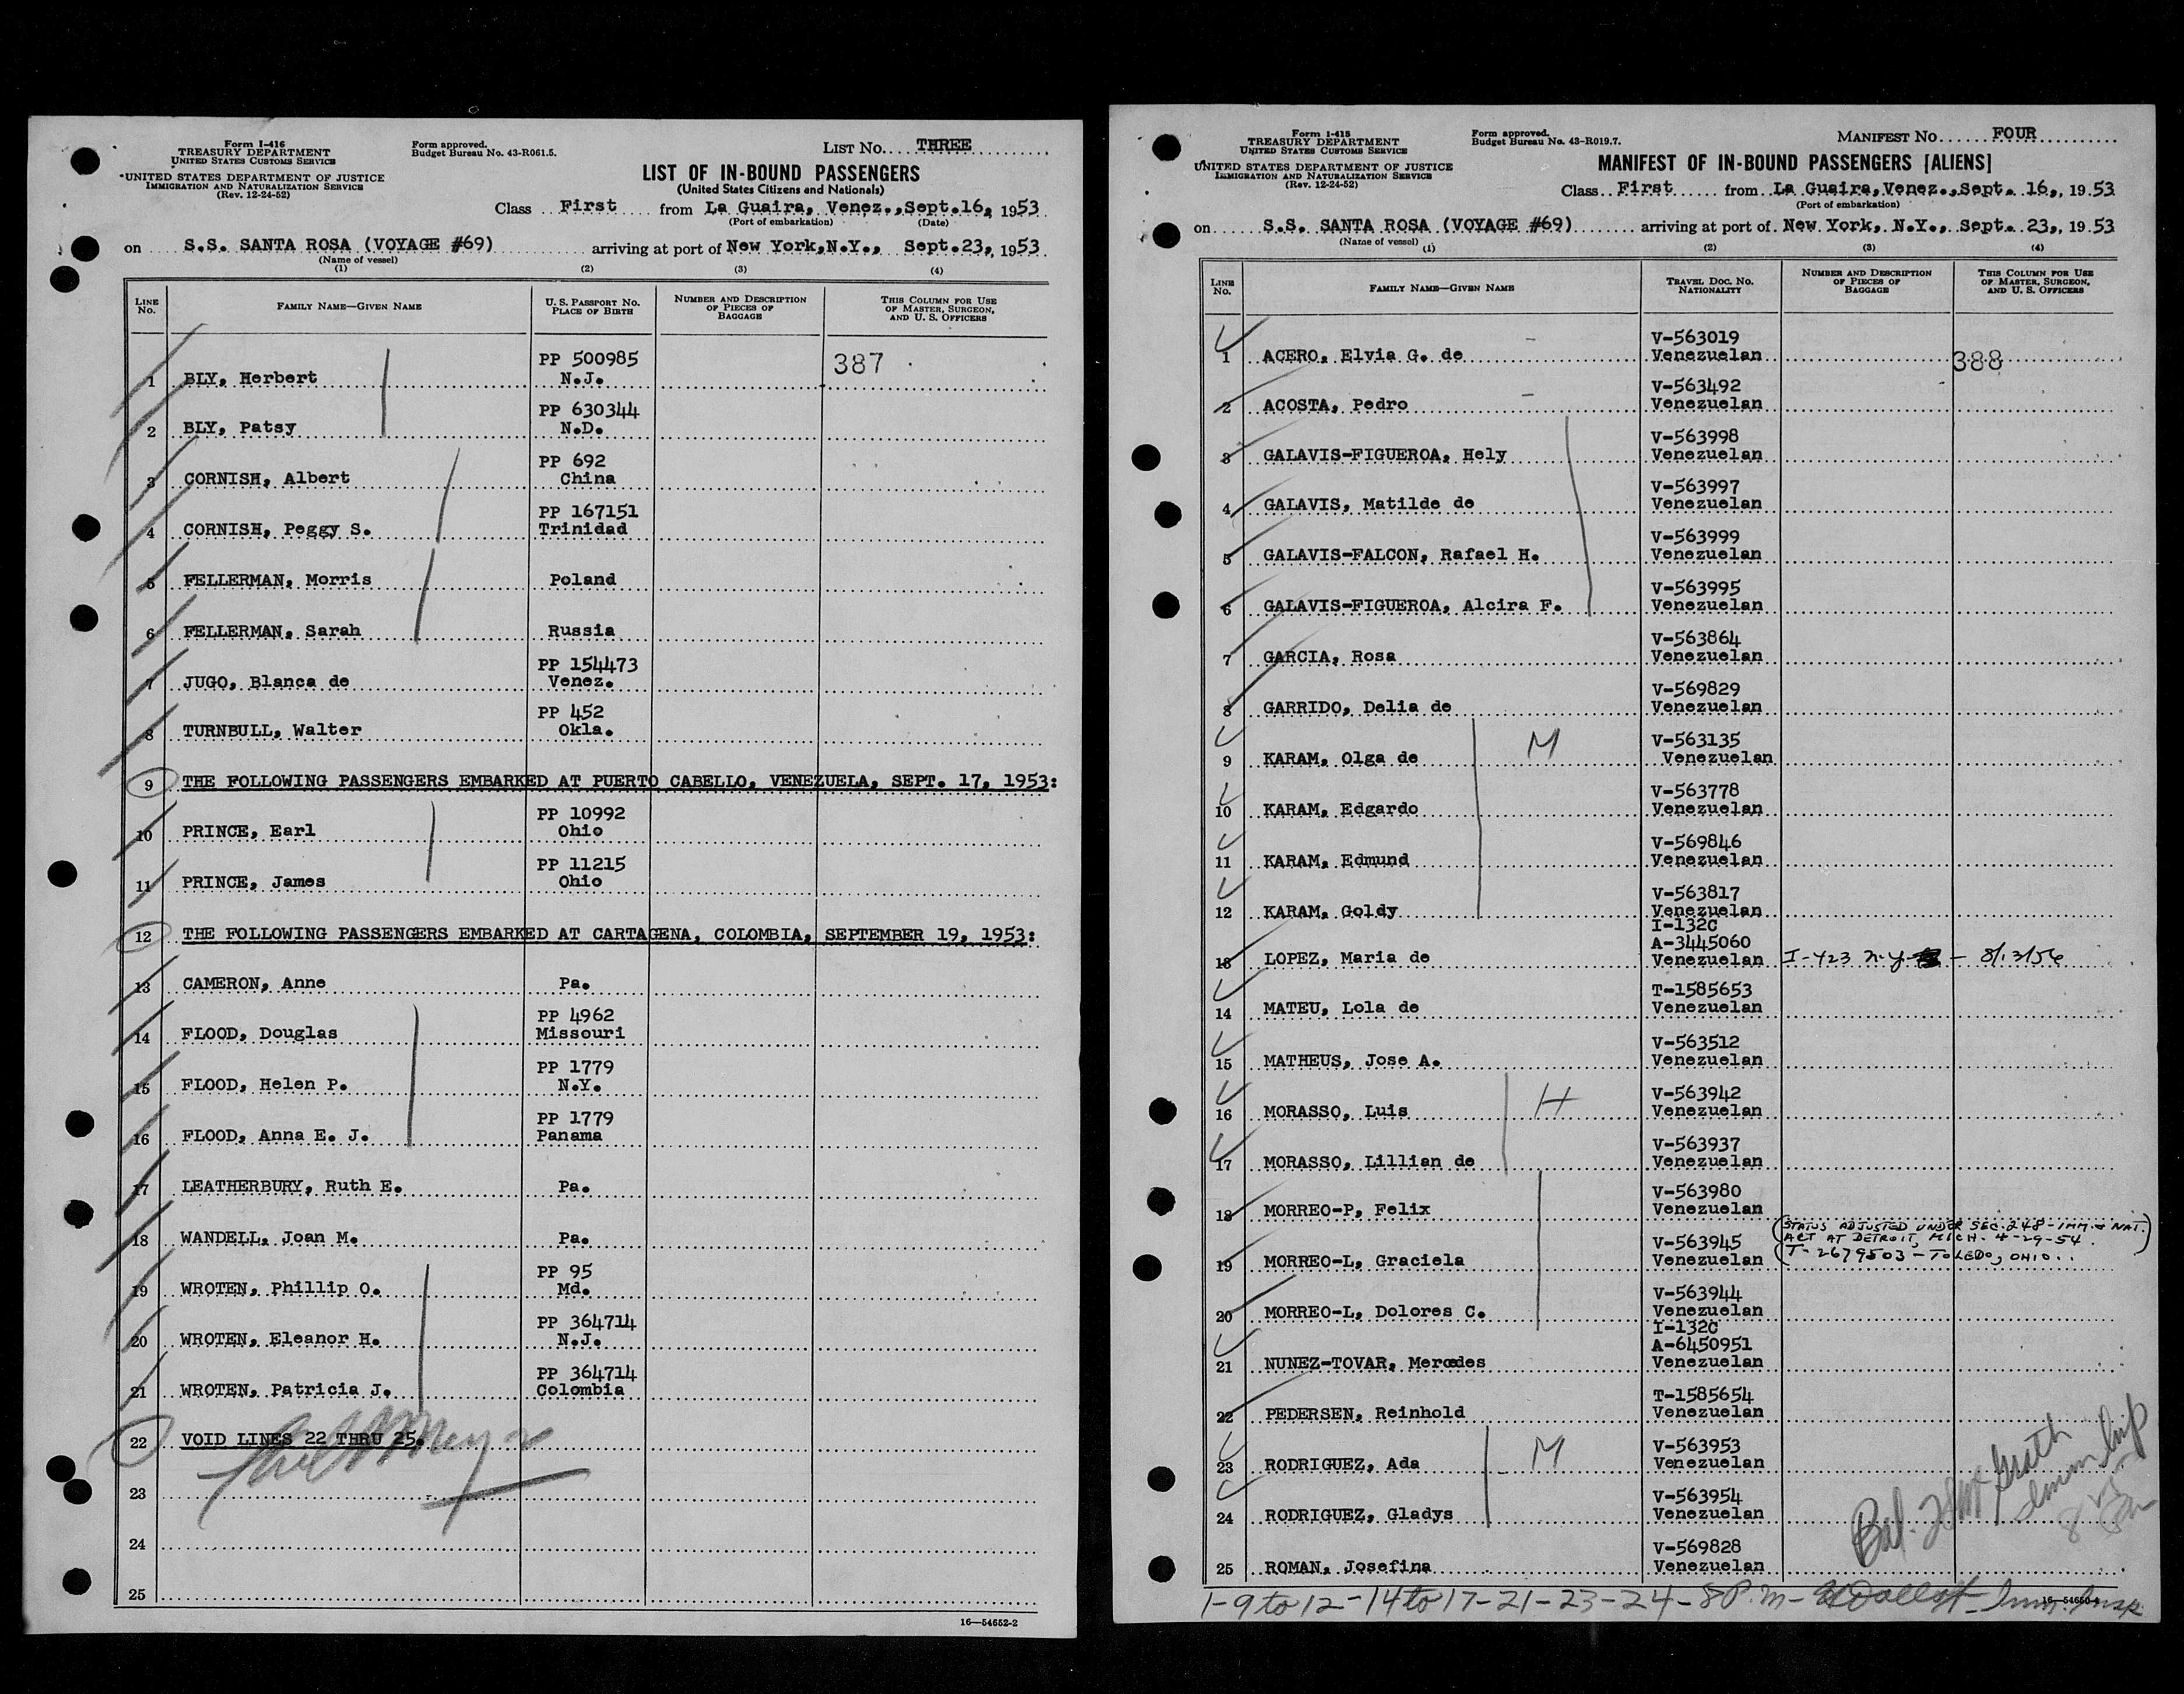 Form I-416
TREASURY DEPARTMENT
UNITED STATES CUSTOMS SERVICE
UNITED STATES DEPARTMENT OF JUSTICE
IMMIGRATION AND NATURALIZATION SERVICE
(Rev. 12-24-52)
Form approved.
Budget Bureau No. 43-R061.5.
LIST No. THREE
LIST OF IN-BOUND PASSENGERS
(United States Citizens and Nationals)
Class First from La Guaira, Venez., Sept. 16, 1953
(Port of embarkation) (Date)
on S.S. SANTA ROSA (VOYAGE #69) arriving at port of New York, N.Y., Sept. 23, 1953
(Name of vessel)
(1) (2) (3) (4)
LINE No. FAMILY NAME—GIVEN NAME U. S. PASSPORT NO. PLACE OF BIRTH NUMBER AND DESCRIPTION OF PIECES OF BAGGAGE THIS COLUMN FOR USE OF MASTER, SURGEON, AND U. S. OFFICERS
PP 500985 387
1 BLY, Herbert N.J.
PP 630344
2 BLY, Patsy N.D.
PP 692
3 CORNISH, Albert China
PP 167151
4 CORNISH, Peggy S. Trinidad
5 FELLERMAN, Morris Poland
6 FELLERMAN, Sarah Russia
PP 154473
7 JUGO, Blanca de Venez.
PP 452
8 TURNBULL, Walter Okla.
9 THE FOLLOWING PASSENGERS EMBARKED AT PUERTO CABELLO, VENEZUELA, SEPT. 17, 1953:
PP 10992
10 PRINCE, Earl Ohio
PP 11215
11 PRINCE, James Ohio
12 THE FOLLOWING PASSENGERS EMBARKED AT CARTAGENA, COLOMBIA, SEPTEMBER 19, 1953:
13 CAMERON, Anne Pa.
PP 4962
14 FLOOD, Douglas Missouri
PP 1779
15 FLOOD, Helen P. N.Y.
PP 1779
16 FLOOD, Anna E. J. Panama
17 LEATHERBURY, Ruth E. Pa.
18 WANDELL, Joan M. Pa.
PP 95
19 WROTEN, Phillip O. Md.
PP 364714
20 WROTEN, Eleanor H. N.J.
PP 364714
21 WROTEN, Patricia J. Colombia
22 VOID LINES 22 THRU 25.
23
24
25
16—54652-2
Form I-415
TREASURY DEPARTMENT
UNITED STATES CUSTOMS SERVICE
UNITED STATES DEPARTMENT OF JUSTICE
IMMIGRATION AND NATURALIZATION SERVICE
(Rev. 12-24-52)
Form approved.
Budget Bureau No. 43-R019.7.
MANIFEST No. FOUR
MANIFEST OF IN-BOUND PASSENGERS [ALIENS]
Class First from La Guaira, Venez., Sept. 16, 1953
(Port of embarkation)
on S.S. SANTA ROSA (VOYAGE #69) arriving at port of New York, N.Y., Sept. 23, 1953
(Name of vessel)
(1) (2) (3) (4)
LINE No. FAMILY NAME—GIVEN NAME TRAVEL DOC. NO. NATIONALITY NUMBER AND DESCRIPTION OF PIECES OF BAGGAGE THIS COLUMN FOR USE OF MASTER, SURGEON, AND U. S. OFFICERS
V-563019
1 ACERO, Elvia G. de Venezuelan 388
V-563492
2 ACOSTA, Pedro Venezuelan
V-563998
3 GALAVIS-FIGUEROA, Hely Venezuelan
V-563997
4 GALAVIS, Matilde de Venezuelan
V-563999
5 GALAVIS-FALCON, Rafael H. Venezuelan
V-563995
6 GALAVIS-FIGUEROA, Alcira F. Venezuelan
V-563864
7 GARCIA, Rosa Venezuelan
V-569829
8 GARRIDO, Delia de Venezuelan
V-563135
9 KARAM, Olga de M Venezuelan
V-563778
10 KARAM, Edgardo Venezuelan
V-569846
11 KARAM, Edmund Venezuelan
V-563817
12 KARAM, Goldy Venezuelan
I-132C
A-3445060
13 LOPEZ, Maria de Venezuelan I-423 N.Y. - 8/13/56
T-1585653
14 MATEU, Lola de Venezuelan
V-563512
15 MATHEUS, Jose A. Venezuelan
V-563942
16 MORASSO, Luis H Venezuelan
V-563937
17 MORASSO, Lillian de Venezuelan
V-563980
18 MORREO-P, Felix Venezuelan
(STATUS ADJUSTED UNDER SEC. 248 - IMM. & NAT.
V-563945 ACT AT DETROIT, MICH. 4-29-54.
19 MORREO-L, Graciela Venezuelan T-2679503 - TOLEDO, OHIO..)
V-563944
20 MORREO-L, Dolores C. Venezuelan
I-132C
A-6450951
21 NUNEZ-TOVAR, Mercedes Venezuelan
T-1585654
22 PEDERSEN, Reinhold Venezuelan
V-563953
23 RODRIGUEZ, Ada M Venezuelan
V-563954
24 RODRIGUEZ, Gladys Venezuelan
V-569828
25 ROMAN, Josefina Venezuelan
Bal. McGrath
Imm Insp
1-9 to 12-14 to 17-21-23-24-8 P.M- Imm. Insp.